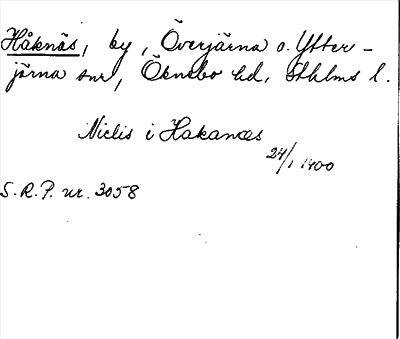 Håknäs, by, Överjärna o. Ytter-
järna snr, Öknebo hd, Sthlms l.
Niclis i Hakanæs
24/1 1400
S.R.P. nr. 3058